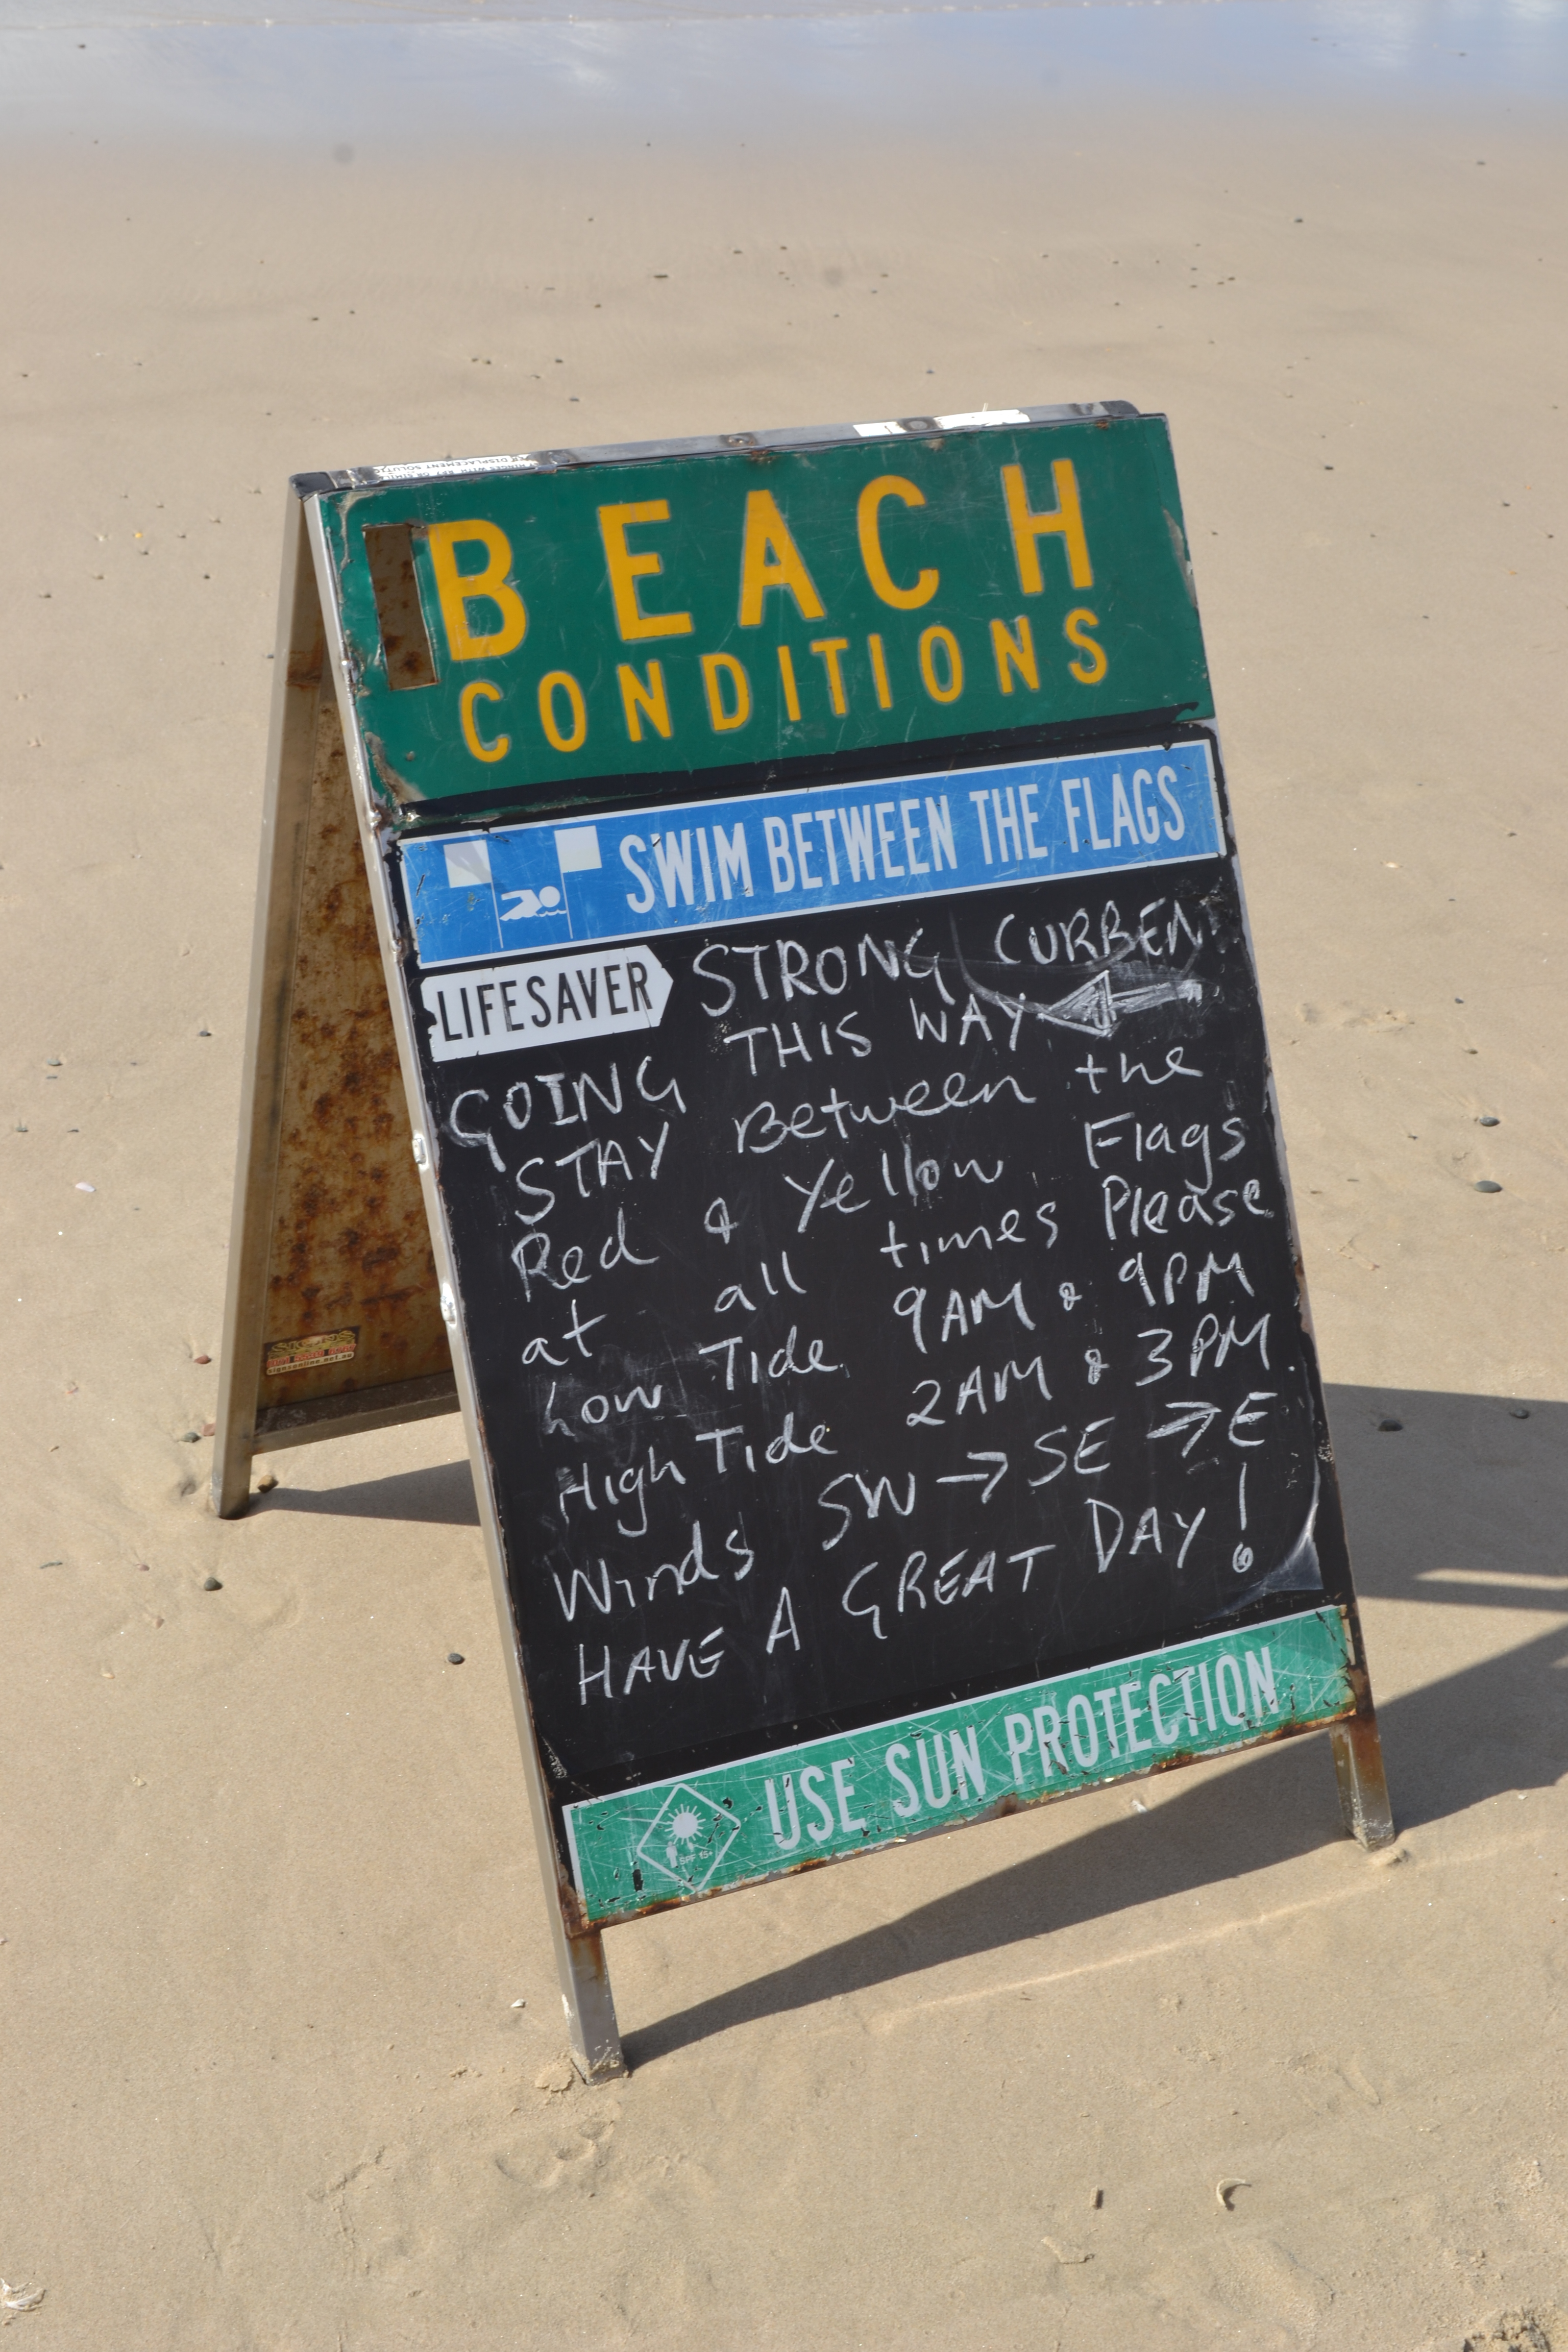 BEACH
CONDITIONS
SWIM BETWEEN THE FLAGS
LIFESAVER
STRONG CURREN
GOING THIS WAY
STAY Between the
Red & Yellow Flags
at all times Please
Low Tide 9AM & 9PM
High Tide 2AM & 3PM.
Winds SW → SE → E
HAVE A GREAT DAY!
SPF 15+
USE SUN PROTECTION